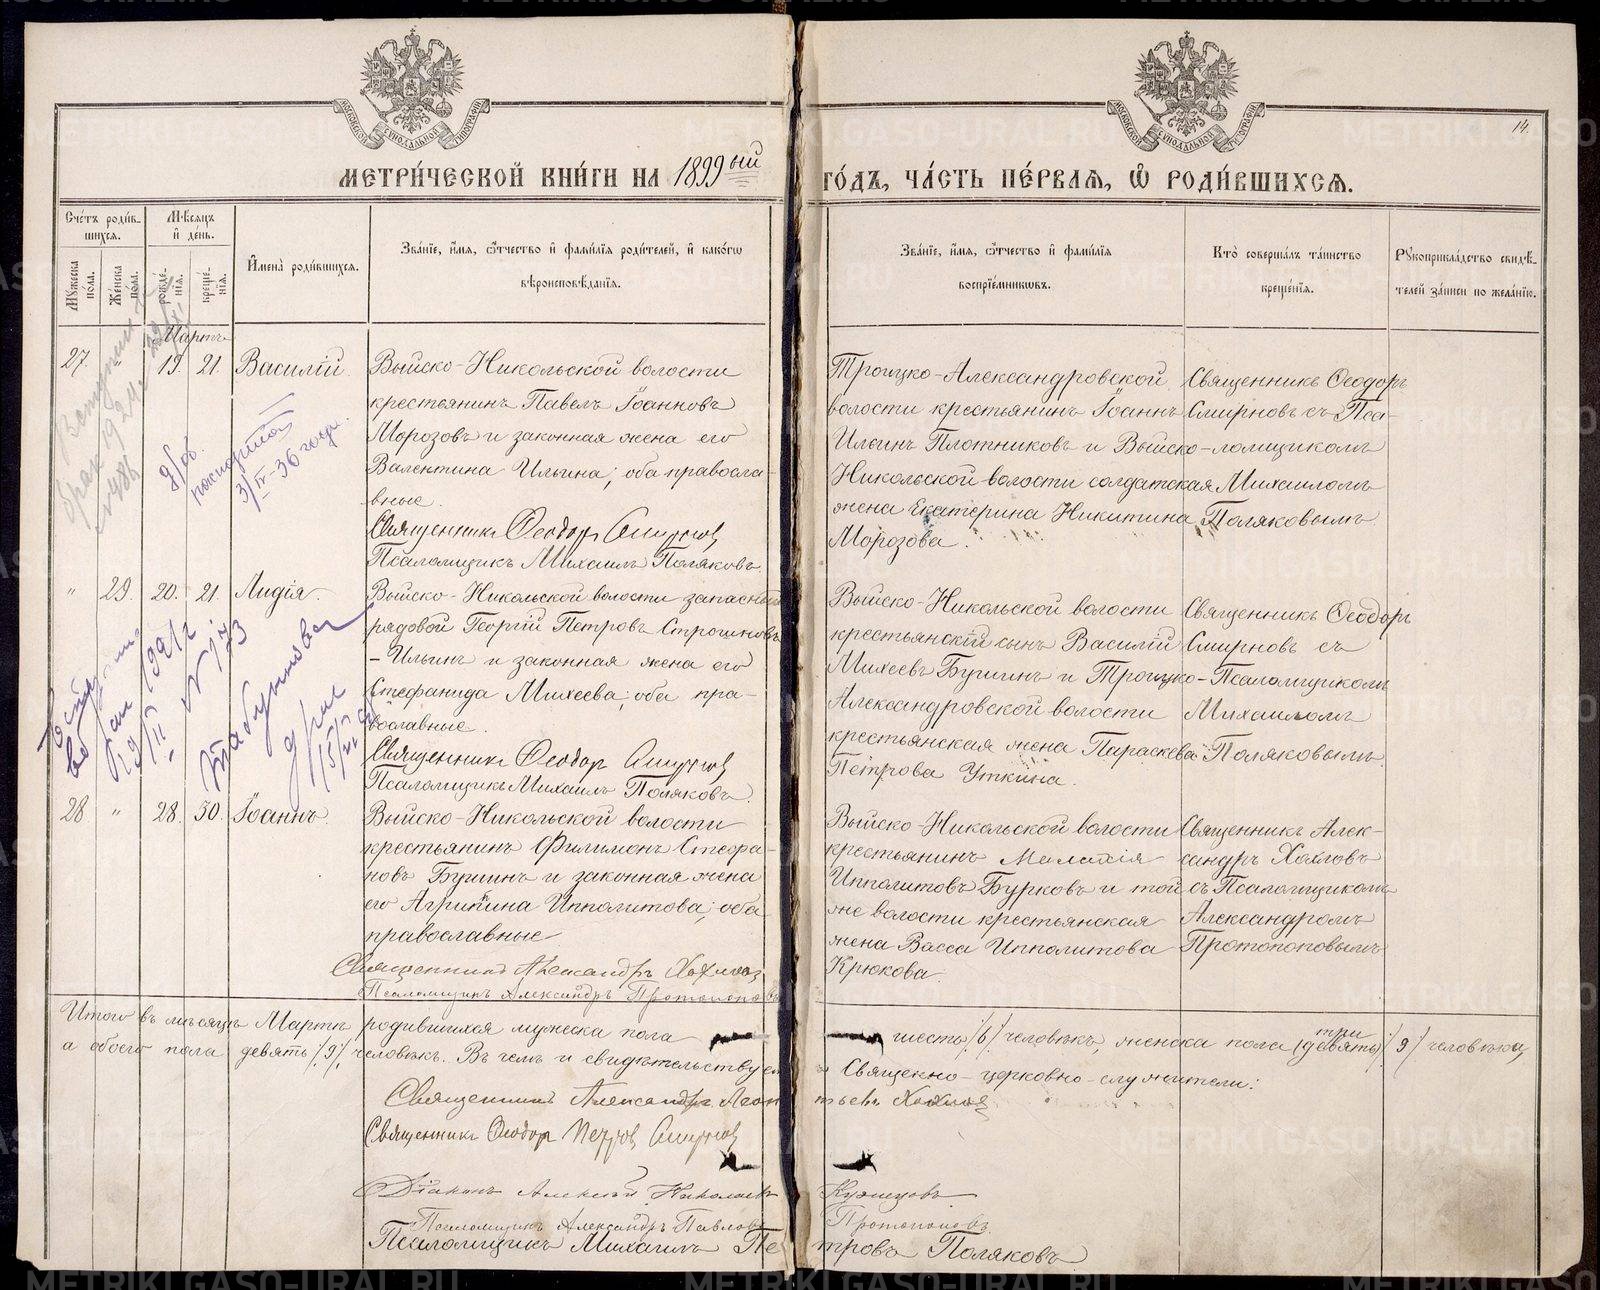 МЕТРИ́ЧЕСКОЙ КНИ́ГИ НА 1899ый
ГО́ДЪ, ЧА́СТЬ ПЕ́РВАѦ, Ѡ РОДИ́ВШИХСѦ.
14.
Сче́тъ роди́в-
шихся.
Мѣсяцъ
и҆ де́нь.
И҆мена̀ роди́вшихся.
Зва́нїе, и҆́мѧ, ѻ҆́тчество и҆ фами́лїѧ роди́телей, и҆ како́гѡ
вѣроисповѣ́данїѧ.
Мꙋ́жеска по́ла.
Же́нска по́ла.
рожде́-нїѧ.
креще́-нїѧ.
Зва́нїе, и҆́мѧ, ѻ҆́тчество и҆ фами́лїѧ
воспрїе́мникѡвъ.
Кто̀ соверша́лъ та́инство
креще́нїѧ.
Рꙋкоприкла́дство свидѣ́-
телей за́писи по жела́нїю.
Мартъ
27. " 19. 21. Василій.
Выйско-Никольской волости
крестьянинъ Павелъ Іоанновъ
Морозовъ и законная жена его
Валентина Ильина; оба правосла-
вные.
Священникъ Ѳеодоръ Смирновъ
Псаломщикъ Михаилъ Поляковъ.
Троицко-Александровской
волости крестьянинъ Іоаннъ
Ильинъ Плотниковъ и Выйско-
Никольской волости солдатская
жена Екатерина Никитина
Морозова.
Священникъ Ѳеодоръ
Смирновъ съ Пса-
ломщикомъ
Михаиломъ
Поляковымъ.
брак 1924
№ 486
паспортъ
3/IV-36 года.
" 29. 20. 21. Лидія.
Выйско-Никольской волости запасный
рядовой Георгій Петровъ Строшковъ
-Ильинъ и законная жена его
Стефанида Михеева; оба пра-
вославные.
Священникъ Ѳеодоръ Смирновъ
Псаломщикъ Михаилъ Поляковъ.
Выйско-Никольской волости
крестьянскій сынъ Василій
Михеевъ Бушинъ и Троицко-
Александровской волости
крестьянская жена Параскева
Петрова Уткина.
Священникъ Ѳеодоръ
Смирновъ съ
Псаломщикомъ
Михаиломъ
Поляковымъ.
№ 173
28. " 28. 30. Іоаннъ.
Выйско-Никольской волости
крестьянинъ Филимонъ Стефа-
новъ Бушинъ и законная жена
его Агрипина Ипполитова; оба
православные
Священникъ Александръ Хохловъ
Псаломщикъ Александръ Протопоповъ
Выйско-Никольской волости
крестьянинъ Малахія
Ипполитовъ Бурковъ и той
же волости крестьянская
жена Васса Ипполитова
Крюкова.
Священникъ Алек-
сандръ Хохловъ
съ Псаломщикомъ
Александромъ
Протопоповымъ
Итого въ мѣсяцѣ Мартѣ родившихся мужеска пола шесть /6/ человѣкъ, женска пола три (девять) /3/ человѣка,
а обоего пола девять /9/ человѣкъ. Въ чемъ и свидѣтельствуемъ Священно-церковно-служители:
Священникъ Александръ Леонтьевъ Хохловъ
Священникъ Ѳеодоръ Петровъ Смирновъ
Діаконъ Алексѣй Николаевъ Кузнецовъ
Псаломщикъ Александръ Павловъ Протопоповъ
Псаломщикъ Михаилъ Петровъ Поляковъ
METRIKI.GASO-URAL.RU